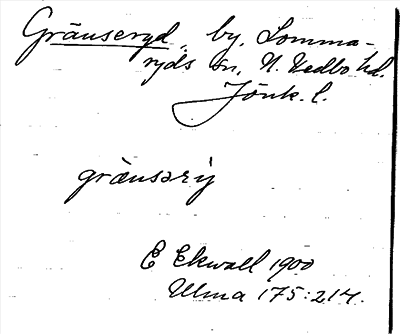 Gränseryd, by, Somma-
ryds sn, N. Vedbo hd.
Jönk. l.
grä̀nsərẏ
E Ekwall 1900
Ulma 175:217.